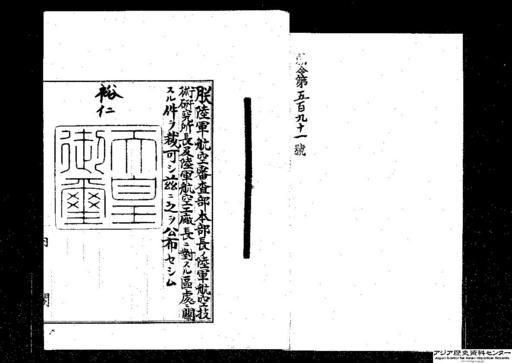 令第五百九十一號
朕陸軍航空審査部本部長ノ陸軍航空技
術研究所長及陸軍航空工廠長ニ對スル區處ニ關
スル件ヲ裁可シ玆ニ之ヲ公布セシム
裕仁
天皇
御璽
アジア歴史資料センター
Japan Center for Asian Historical Records